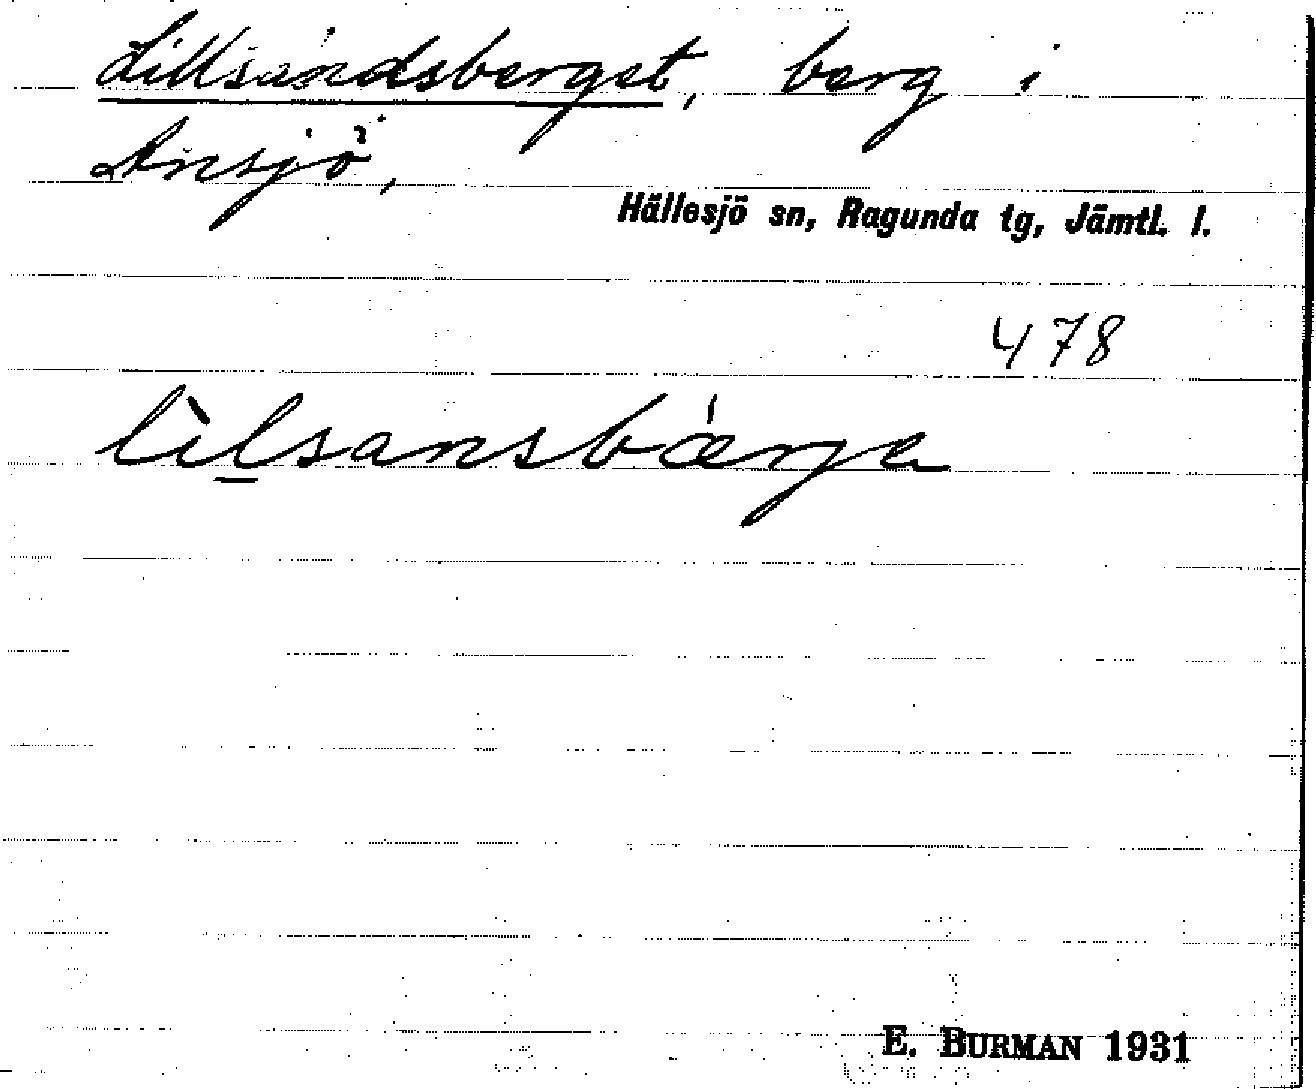 Lillsandsberget, berg i
Ansjö,
Hällesjö sn, Ragunda tg, Jämtl. l.
478
lìlsansbærjɐ
E. BURMAN 1931